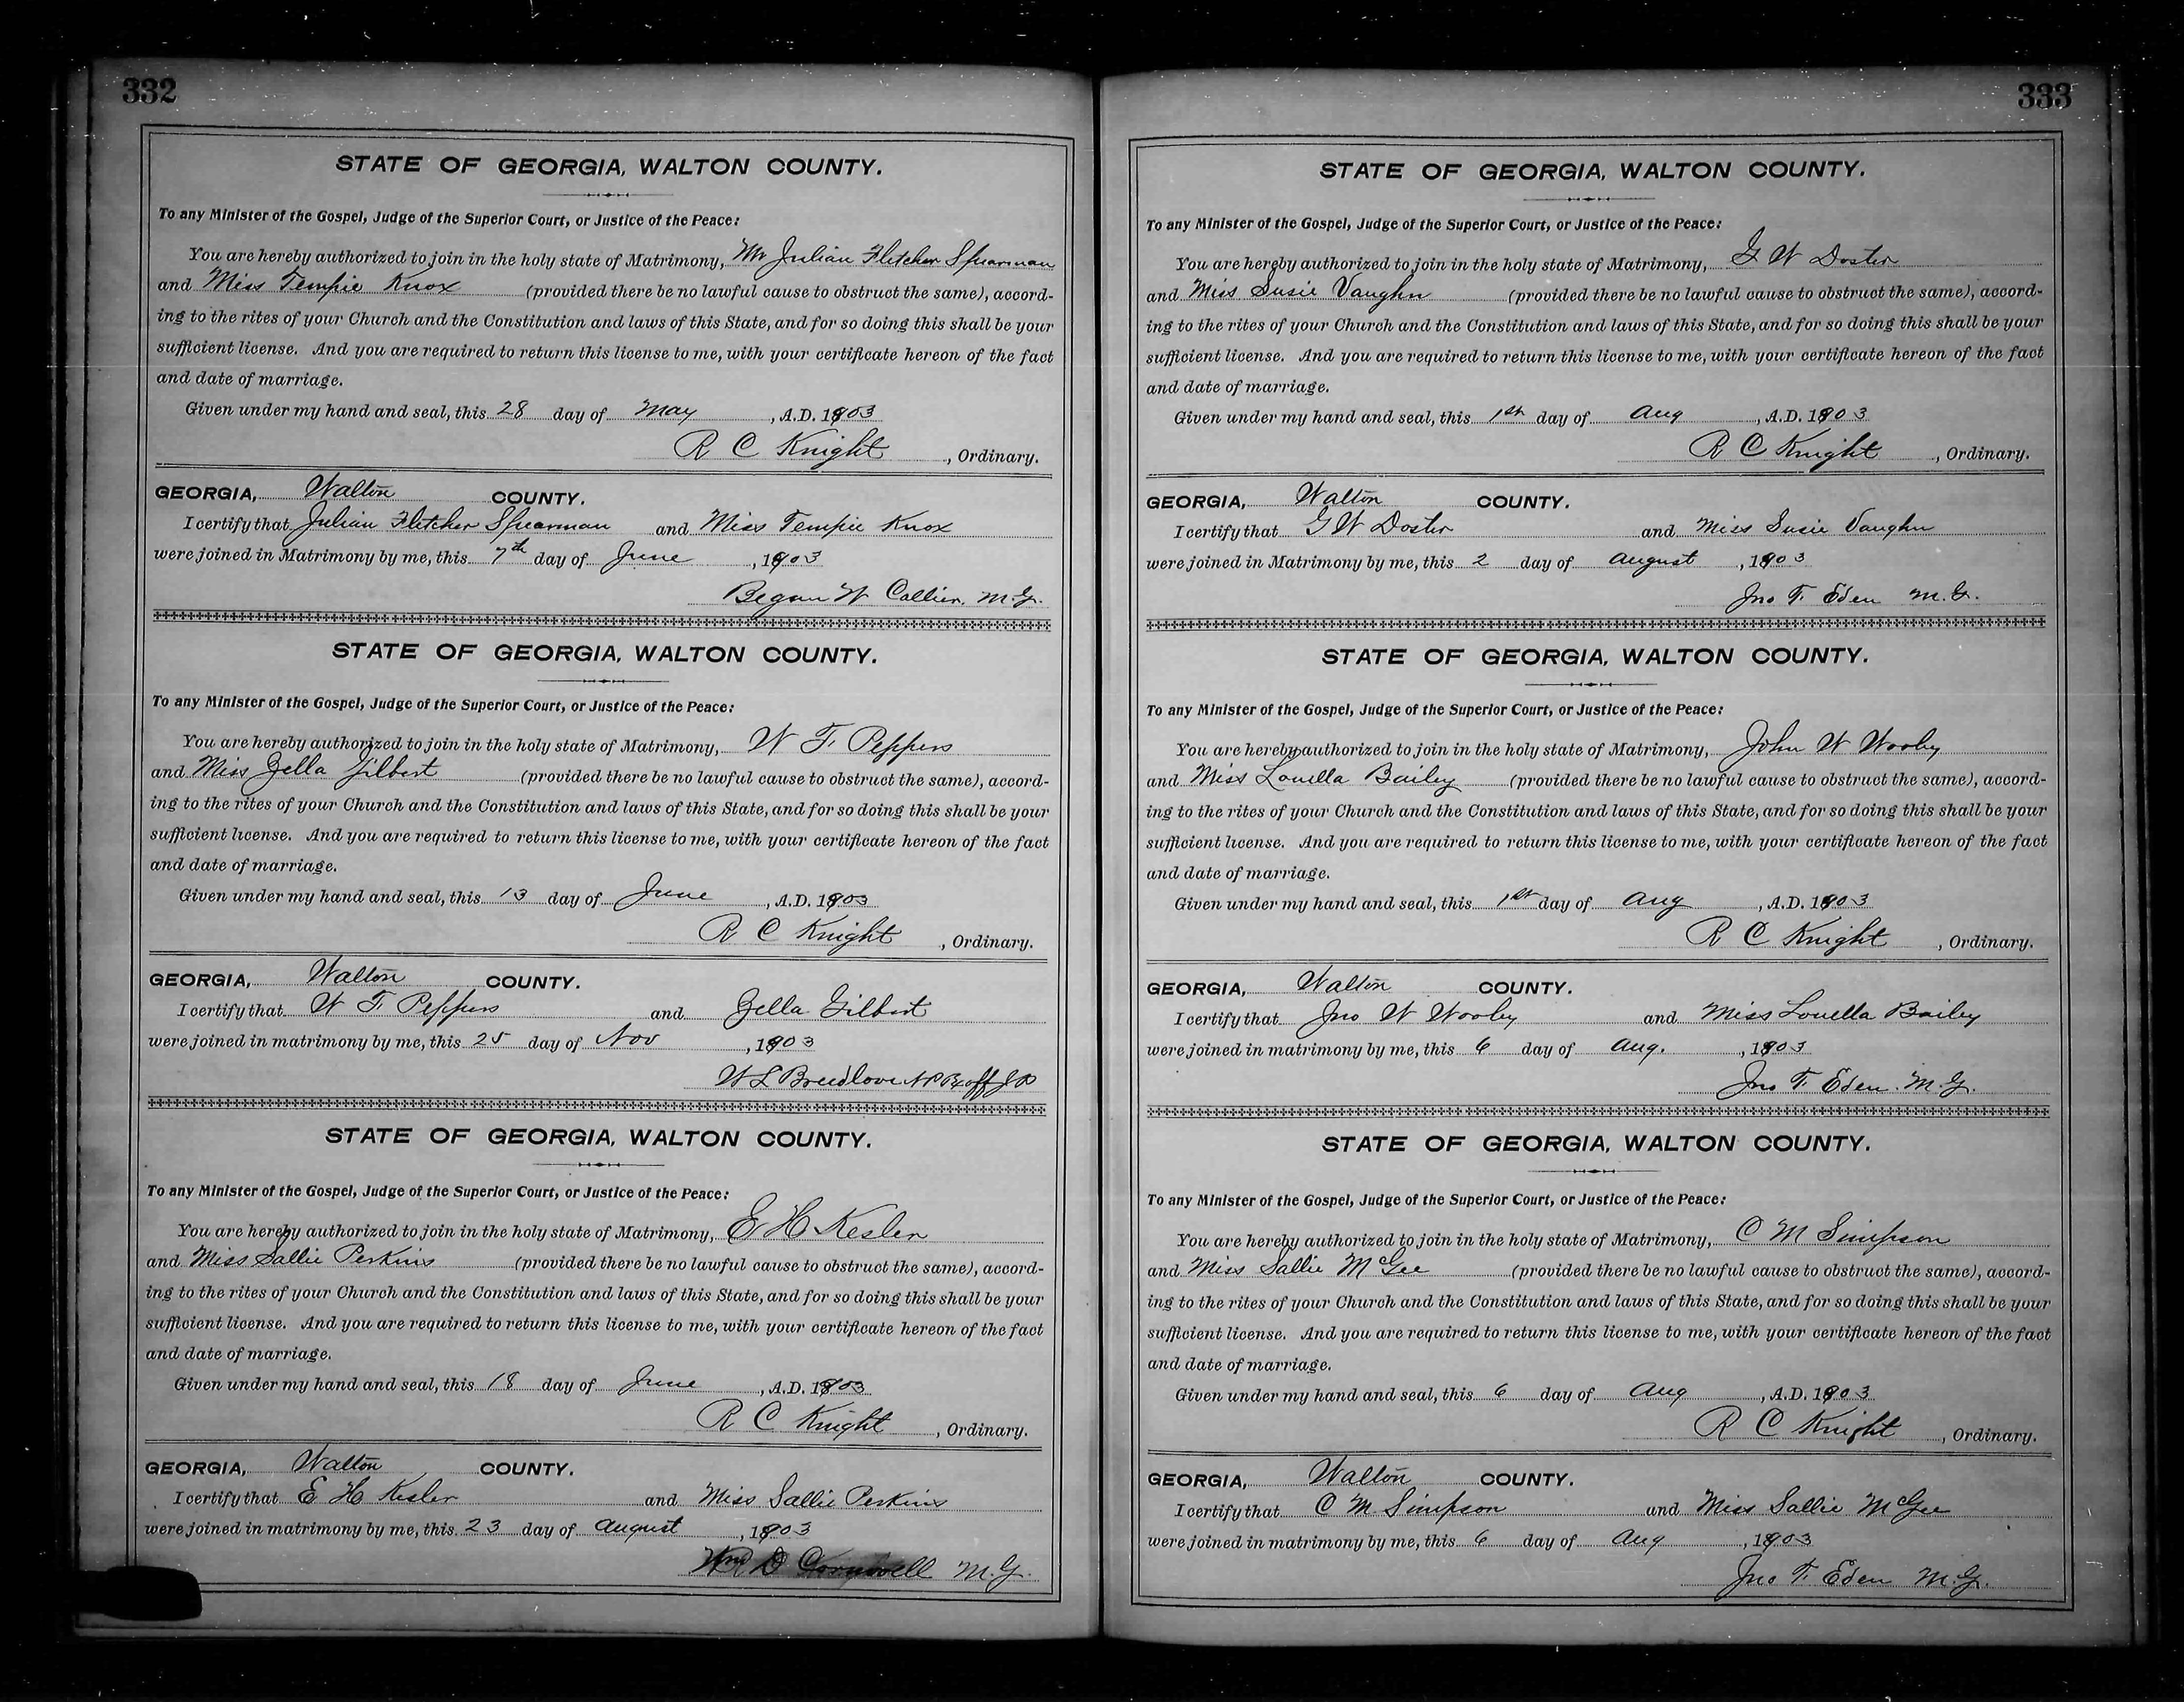 332
STATE OF GEORGIA, WALTON COUNTY.
To any Minister of the Gospel, Judge of the Superior Court, or Justice of the Peace:
You are hereby authorized to join in the holy state of Matrimony, Mr Julian Fletcher Spearman
and Miss Tempie Knox (provided there be no lawful cause to obstruct the same), accord-
ing to the rites of your Church and the Constitution and laws of this State, and for so doing this shall be your
sufficient license. And you are required to return this license to me, with your certificate hereon of the fact
and date of marriage.
Given under my hand and seal, this 28 day of May, A.D. 1903
R C Knight, Ordinary.
GEORGIA, Walton COUNTY.
I certify that Julian Fletcher Spearman and Miss Tempie Knox
were joined in Matrimony by me, this 7th day of June, 1903
W Collier. M.G.
STATE OF GEORGIA, WALTON COUNTY.
To any Minister of the Gospel, Judge of the Superior Court, or Justice of the Peace:
You are hereby authorized to join in the holy state of Matrimony, W F Peppers
and Miss Zella Gilbert (provided there be no lawful cause to obstruct the same), accord-
ing to the rites of your Church and the Constitution and laws of this State, and for so doing this shall be your
sufficient license. And you are required to return this license to me, with your certificate hereon of the fact
and date of marriage.
Given under my hand and seal, this 13 day of June, A.D. 1903
R C Knight, Ordinary.
GEORGIA, Walton COUNTY.
I certify that W F Peppers and Zella Gilbert
were joined in matrimony by me, this 25 day of Nov, 1903
W L Breedlove N P & Ex off J P
STATE OF GEORGIA, WALTON COUNTY.
To any Minister of the Gospel, Judge of the Superior Court, or Justice of the Peace:
You are hereby authorized to join in the holy state of Matrimony, E H Kesler
and Miss Sallie Perkins (provided there be no lawful cause to obstruct the same), accord-
ing to the rites of your Church and the Constitution and laws of this State, and for so doing this shall be your
sufficient license. And you are required to return this license to me, with your certificate hereon of the fact
and date of marriage.
Given under my hand and seal, this 18 day of June, A.D. 1903
R C Knight, Ordinary.
GEORGIA, Walton COUNTY.
I certify that E H Kesler and Miss Sallie Perkins
were joined in matrimony by me, this 23 day of August, 1903
D M.G.
333
STATE OF GEORGIA, WALTON COUNTY.
To any Minister of the Gospel, Judge of the Superior Court, or Justice of the Peace:
You are hereby authorized to join in the holy state of Matrimony, G W Doster
and Miss Susie Vaughn (provided there be no lawful cause to obstruct the same), accord-
ing to the rites of your Church and the Constitution and laws of this State, and for so doing this shall be your
sufficient license. And you are required to return this license to me, with your certificate hereon of the fact
and date of marriage.
Given under my hand and seal, this 1st day of Aug, A.D. 1903
R C Knight, Ordinary.
GEORGIA, Walton COUNTY.
I certify that G W Doster and Miss Susie Vaughn
were joined in Matrimony by me, this 2 day of August, 1903
Jno T. Eden M.G.
STATE OF GEORGIA, WALTON COUNTY.
To any Minister of the Gospel, Judge of the Superior Court, or Justice of the Peace:
You are hereby authorized to join in the holy state of Matrimony, John W Wooley
and Miss Louella Bailey (provided there be no lawful cause to obstruct the same), accord-
ing to the rites of your Church and the Constitution and laws of this State, and for so doing this shall be your
sufficient license. And you are required to return this license to me, with your certificate hereon of the fact
and date of marriage.
Given under my hand and seal, this 1st day of Aug, A.D. 1903
R C Knight, Ordinary.
GEORGIA, Walton COUNTY.
I certify that Jno W Wooley and Miss Louella Bailey
were joined in matrimony by me, this 6 day of Aug., 1903
Jno T. Eden. M.G.
STATE OF GEORGIA, WALTON COUNTY.
To any Minister of the Gospel, Judge of the Superior Court, or Justice of the Peace:
You are hereby authorized to join in the holy state of Matrimony, O M Simpson
and Miss Sallie McGee (provided there be no lawful cause to obstruct the same), accord-
ing to the rites of your Church and the Constitution and laws of this State, and for so doing this shall be your
sufficient license. And you are required to return this license to me, with your certificate hereon of the fact
and date of marriage.
Given under my hand and seal, this 6 day of Aug, A.D. 1903
R C Knight, Ordinary.
GEORGIA, Walton COUNTY.
I certify that O M Simpson and Miss Sallie McGee
were joined in matrimony by me, this 6 day of Aug, 1903
Jno T. Eden M.G.